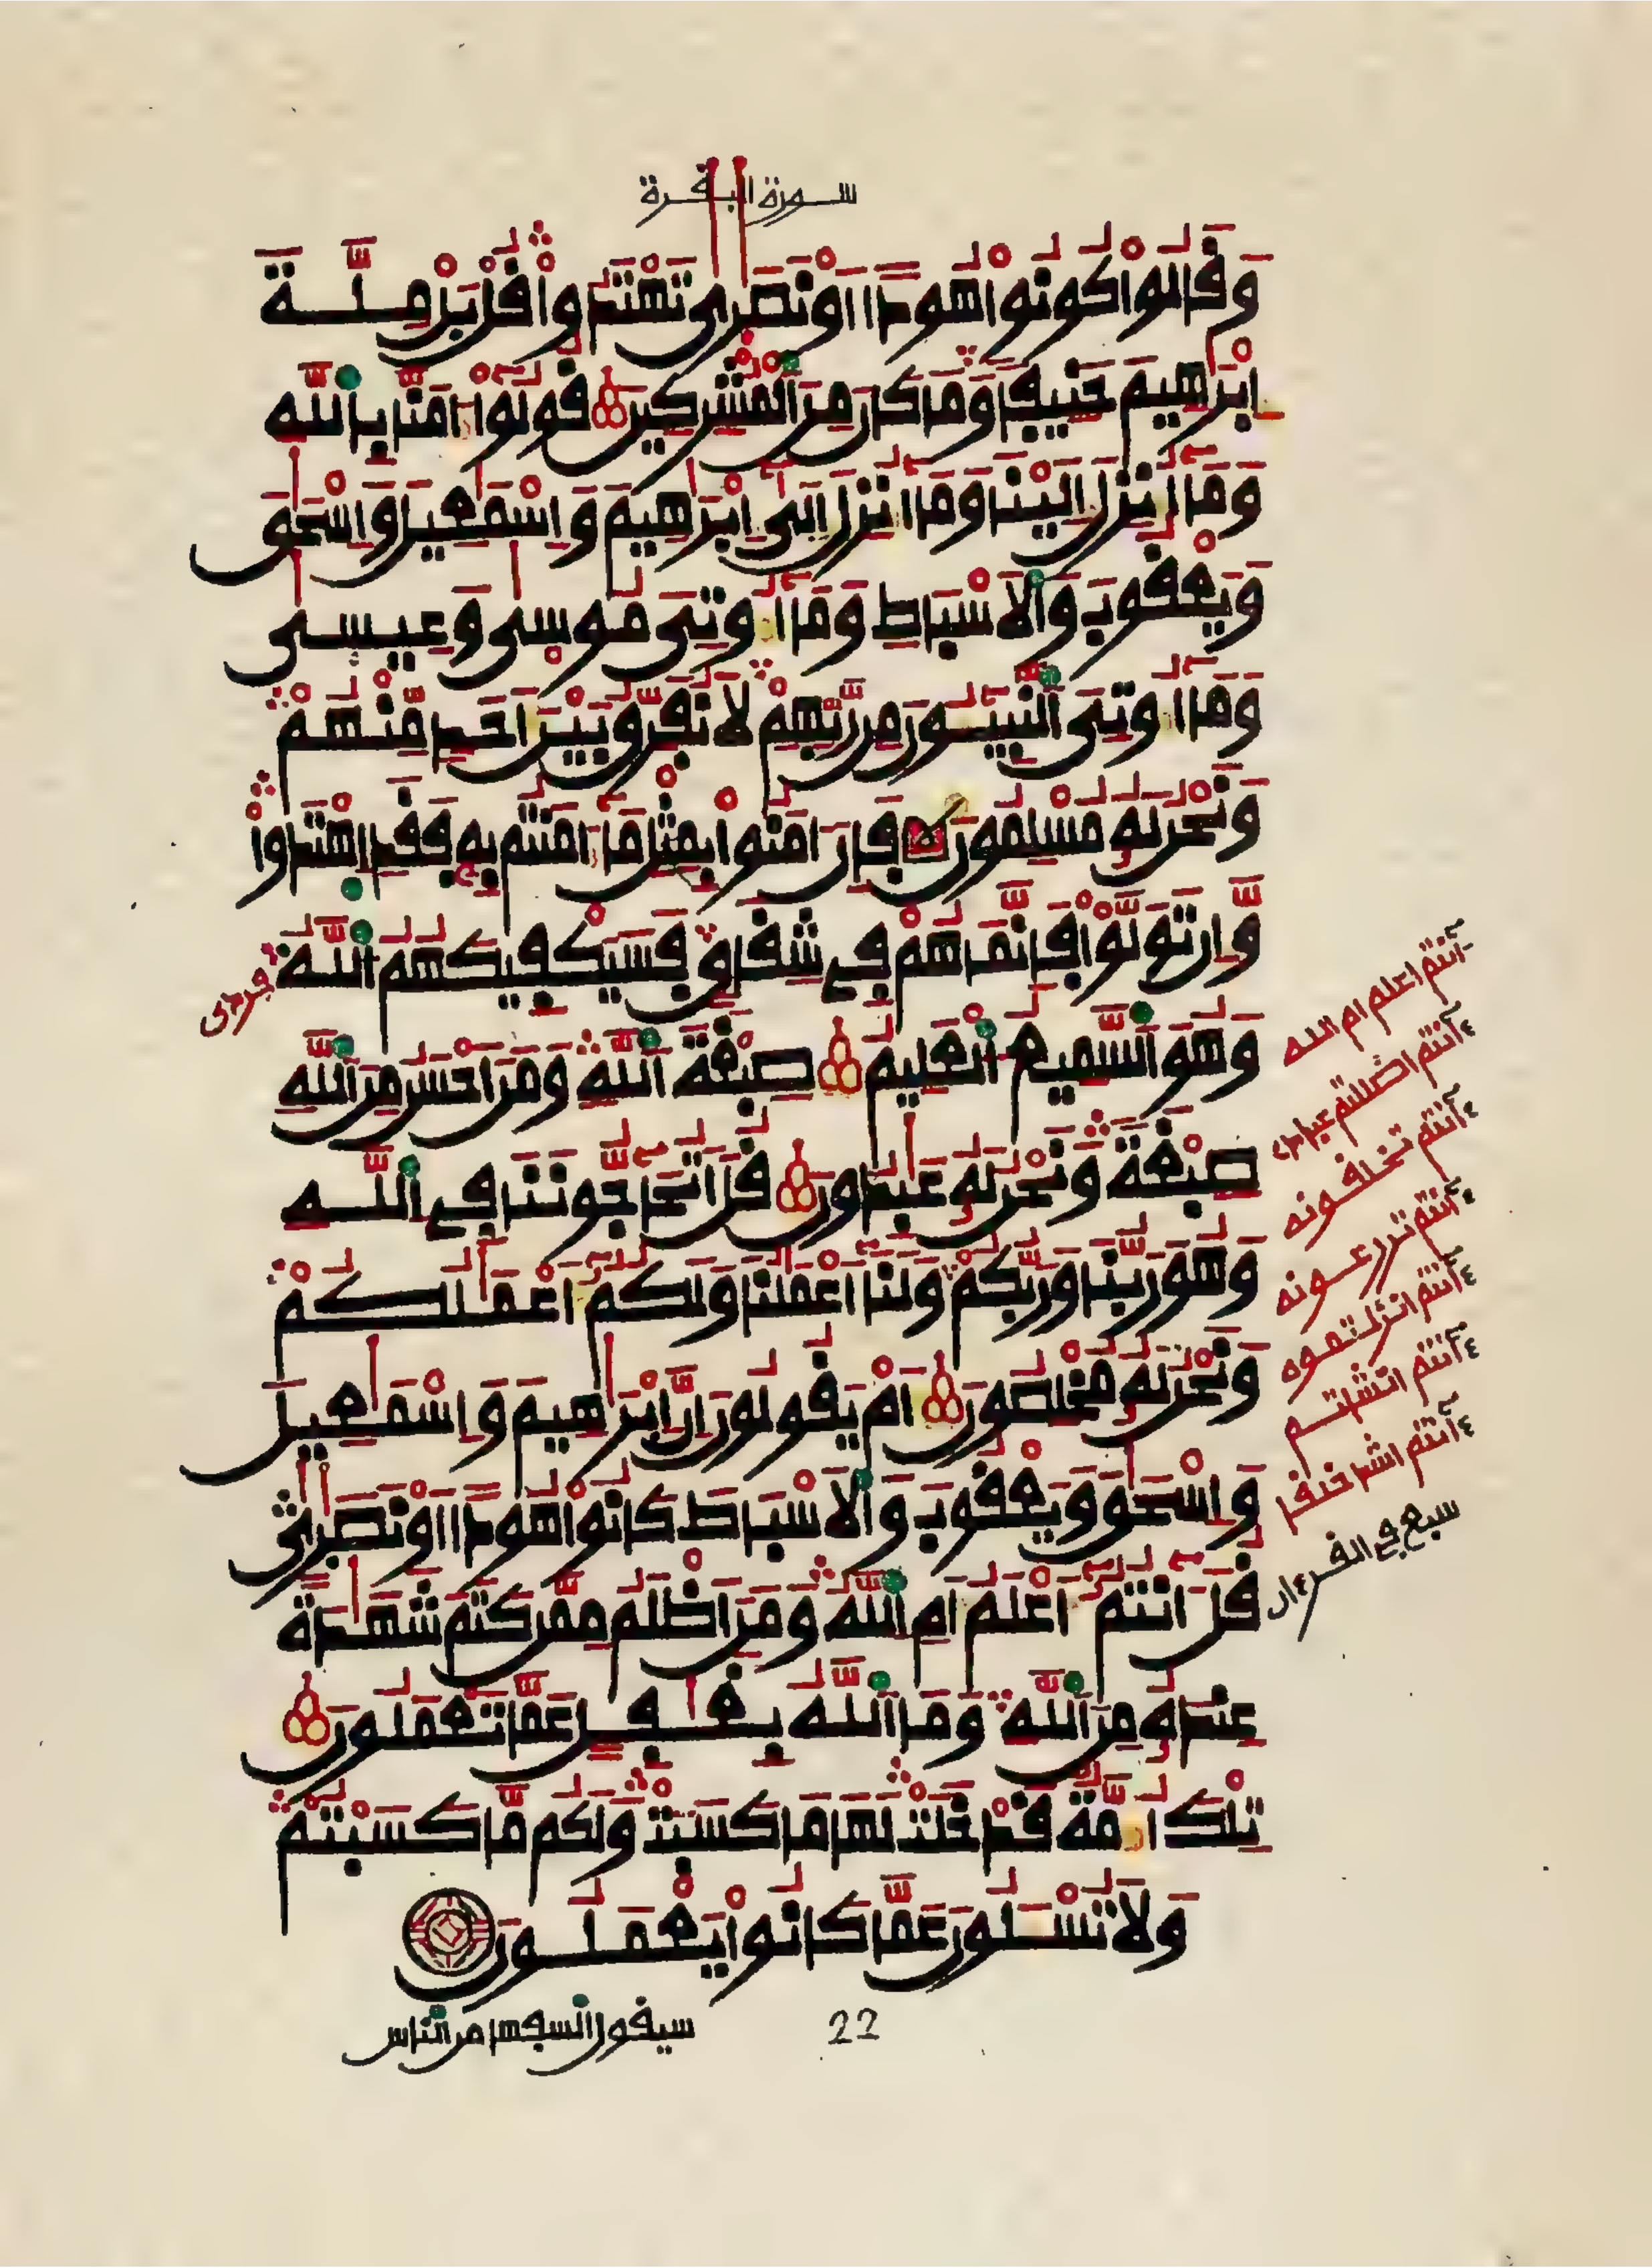 سورة البقرة
وَقَالُواْ كُونُواْ هُوداً اَوْ نَصَٰرَىٰ تَهْتَدُواْ قُلْ بَلْ مِلَّةَ
إِبْرَٰهِيمَ حَنِيفاً وَمَا كَانَ مِنَ اَ۬لْمُشْرِكِينَ قُولُوٓاْ ءَامَنَّا بِاللَّهِ
وَمَآ أُنزِلَ إِلَيْنَا وَمَآ أُنزِلَ إِلَىٰٓ إِبْرَٰهِيمَ وَإِسْمَٰعِيلَ وَإِسْحَٰقَ
وَيَعْقُوبَ وَالَاسْبَاطِ وَمَآ أُوتِيَ مُوسَىٰ وَعِيسَىٰ
وَمَآ أُوتِيَ اَ۬لنَّبِيٓـُٔونَ مِن رَّبِّهِمْ لَا نُفَرِّقُ بَيْنَ أَحَدٍ مِّنْهُمْ
وَنَحْنُ لَهُۥ مُسْلِمُونَ فَإِنَ اٰمَنُواْ بِمِثْلِ مَآ ءَامَنتُم بِهِۦ فَقَدِ اِ۪هْتَدَواْ
وَّإِن تَوَلَّوْاْ فَإِنَّمَا هُمْ فِي شِقَاقٍ فَسَيَكْفِيكَهُمُ اُ۬للَّهُ
وَهُوَ اَ۬لسَّمِيعُ اُ۬لْعَلِيمُ صِبْغَةَ اَ۬للَّهِ وَمَنَ اَحْسَنُ مِنَ اَ۬للَّهِ
صِبْغَةً وَنَحْنُ لَهُۥ عَٰبِدُونَ قُلَ اَتُحَآجُّونَنَا فِي اِ۬للَّهِ
وَهُوَ رَبُّنَا وَرَبُّكُمْ وَلَنَآ أَعْمَٰلُنَا وَلَكُمُۥٓ أَعْمَٰلُكُمْ
وَنَحْنُ لَهُۥ مُخْلِصُونَ أَمْ يَقُولُونَ إِنَّ إِبْرَٰهِيمَ وَإِسْمَٰعِيلَ
وَإِسْحَٰقَ وَيَعْقُوبَ وَالَاسْبَاطَ كَانُواْ هُوداً اَوْ نَصَٰرَىٰ
قُلَ ءَآنتُمُۥٓ أَعْلَمُ أَمِ اِ۬للَّهُ وَمَنَ اَظْلَمُ مِمَّن كَتَمَ شَهَٰدَةً
عِندَهُۥ مِنَ اَ۬للَّهِ وَمَا اَ۬للَّهُ بِغَٰفِلٍ عَمَّا تَعْمَلُونَ
تِلْكَ أُمَّةٌ قَدْ خَلَتْ لَهَا مَا كَسَبَتْ وَلَكُم مَّا كَسَبْتُمْ
وَلَا تُسْـَٔلُونَ عَمَّا كَانُواْ يَعْمَلُونَ
سيقول السفهاء من الناس
22
ءآنتم اعلم ام الله
ءآنتم اضللتم عبادي
ءآنتم تخلقونه
ءآنتم تزرعونه
ءآنتم انزلتموه
ءآنتم انشاتم
ءآنتم اشد خلقا
سبع في القرءان